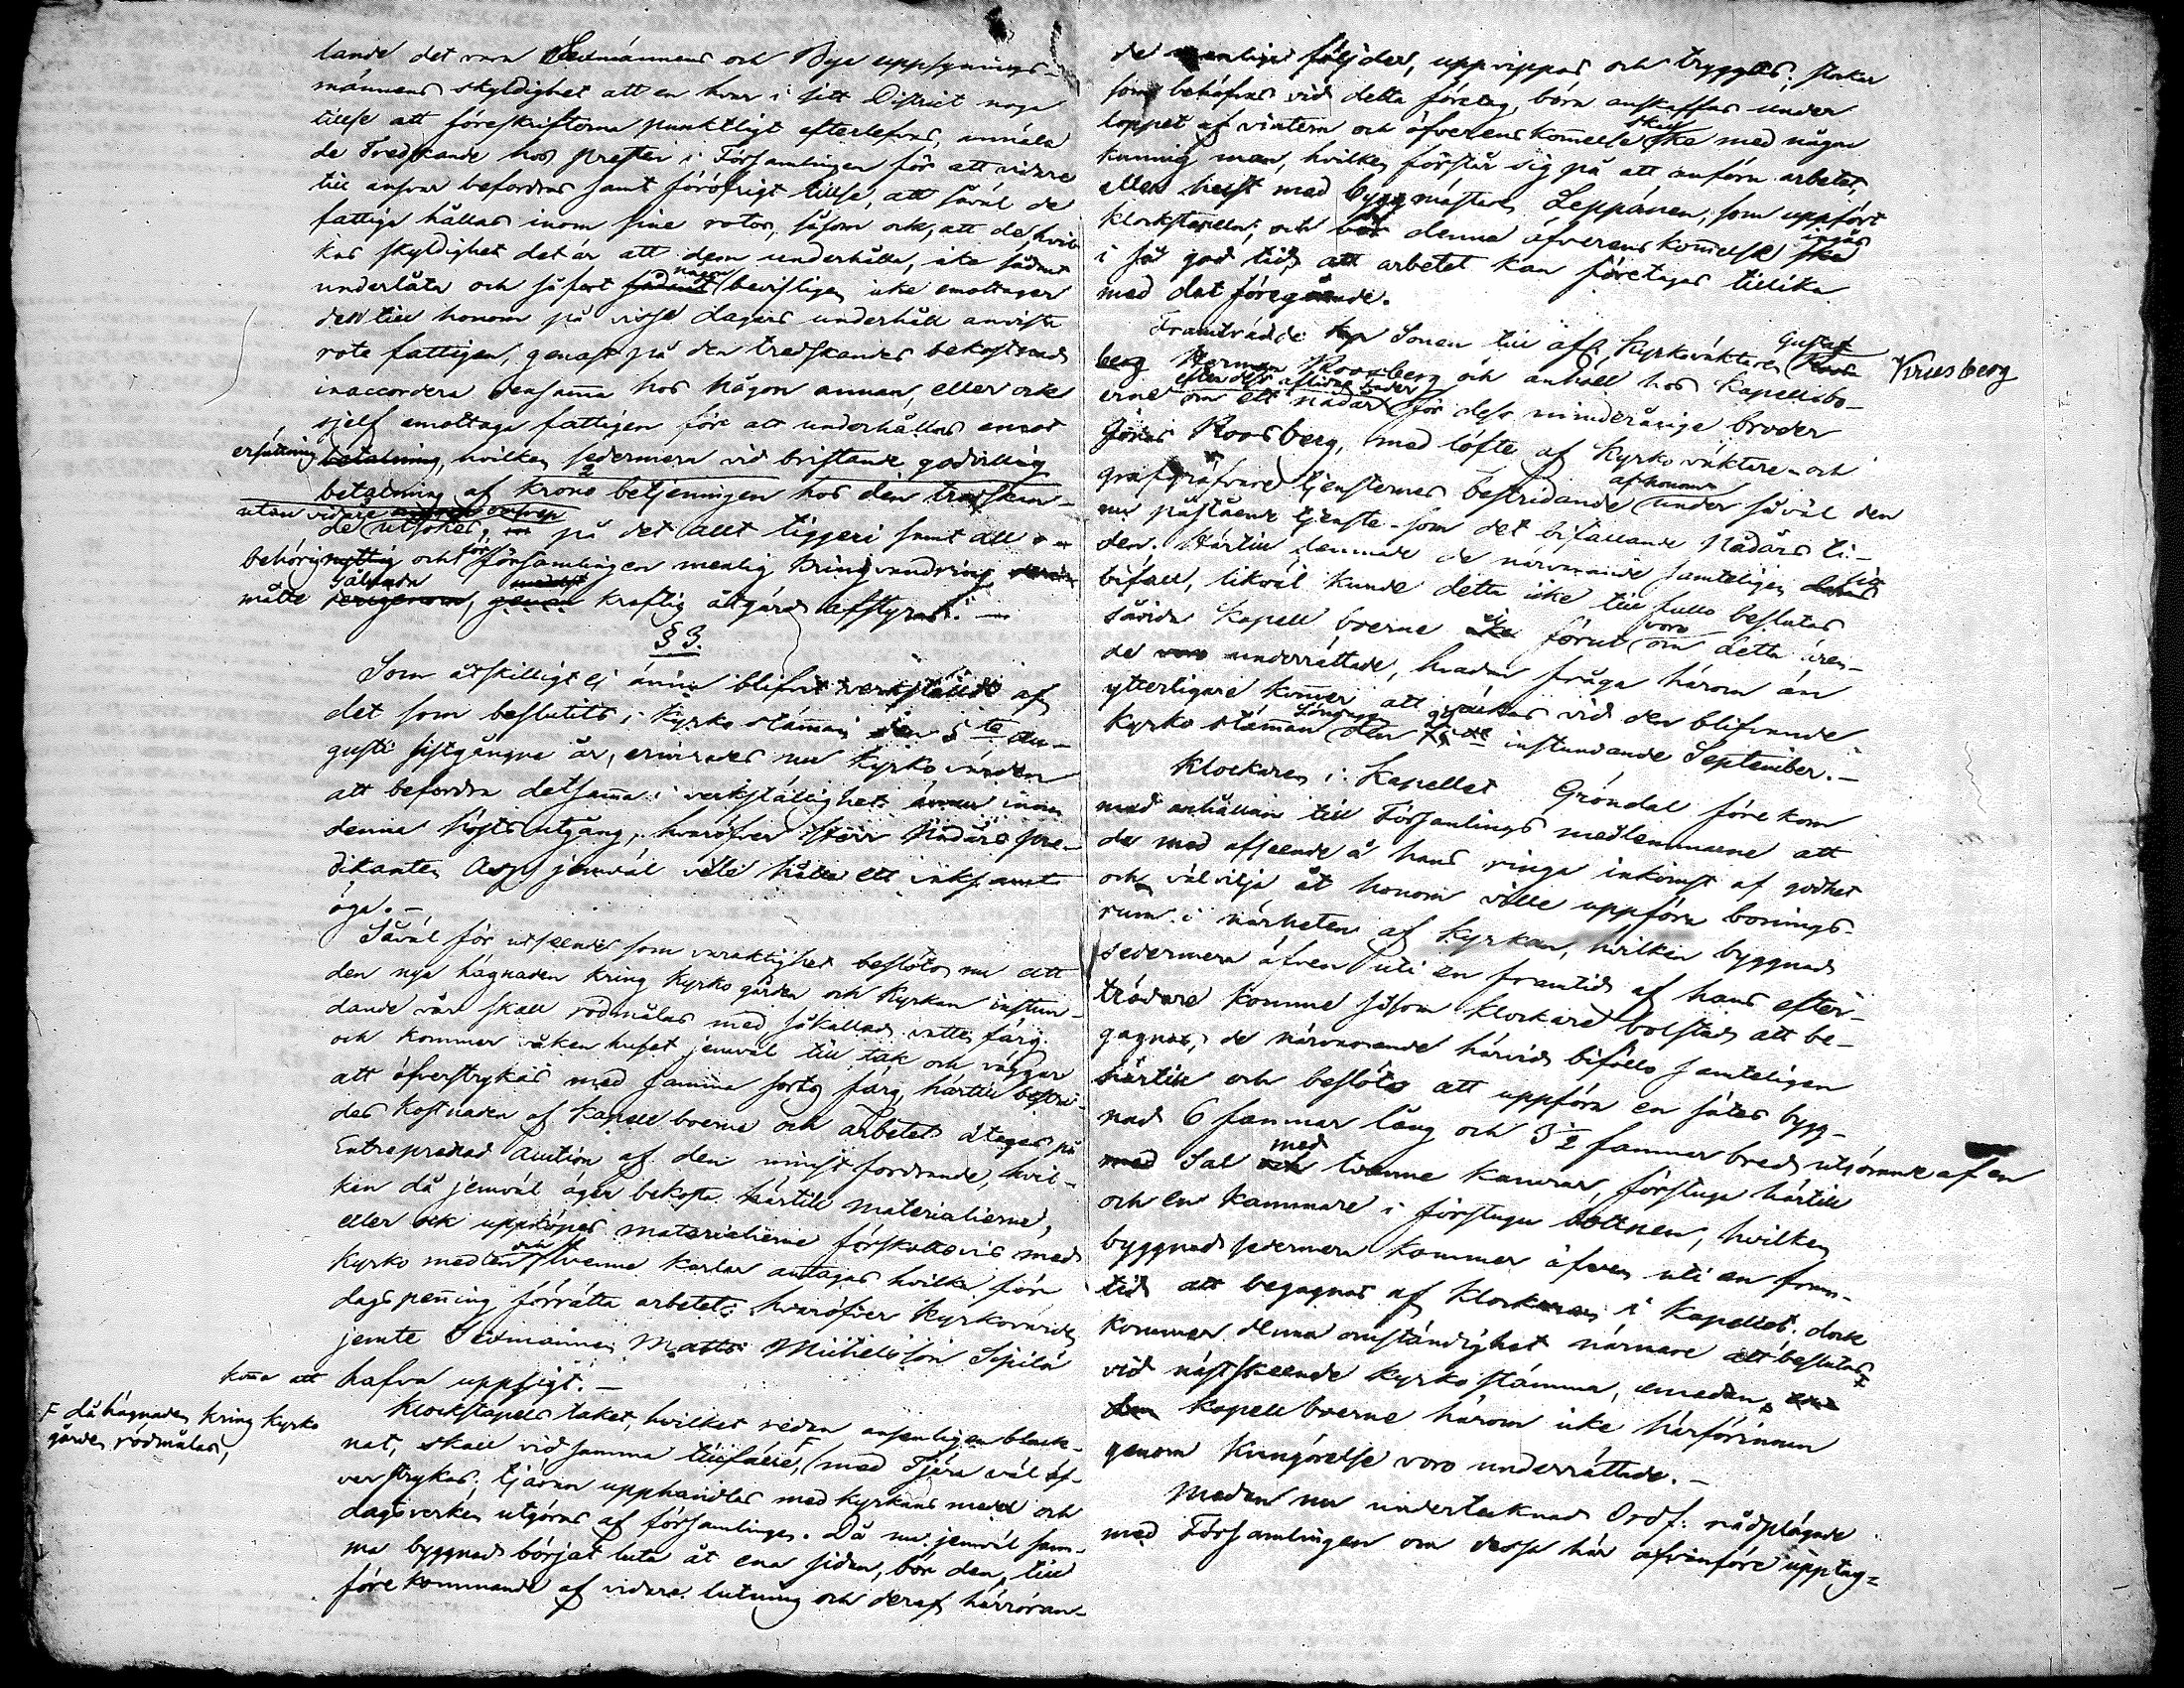 lande det vara Sexmännens och Bye uppsynings-
männens skyldighet att en hvar i sitt District noga
tillse att föreskrifterna punktligt efterlefvas, anmäla
de Tredskande hos prester i Församlingen för att vidare
till ansvar befordras samt föröfrigt tillse, att såväl de
fattiga hållas inom sine rotor, såsom ock, att de, hvil-
kas skyldighet det är att dem underhålla, icke sådant
underlåta och så fort någon bevisligen icke emottager
den till honom på visse dagars underhåll anviste
rote fattigen, genast på den tredskandes bekostnad
inaccordera densamma hos någon annan, eller ock
sjelf emottaga fattigen före att underhållas emot
ersättning betalning, hvilken sedermera vid bristande godvillig
betalning af krono betjeningen hos den tredskan-
utan vidare
de utsökes, på det allt tiggeri samt all o-
behörig nyttig och för församlingen menlig kringvandring
måtte sålunda derigenom, medelst genom kraftig åtgärd afstyras. —
§ 3.
Som åtskilligt ej ännu blifvit verkstäldt af
det som beslutits i Kyrko stämman den 5te Au-
gusti sistgångne år, erinrades nu Kyrko värden
att befordra detsamma i verkställighet innan
denna höjsts utgång, hvaröfver Herr Nådårs pre-
dikanten Asp jemväl ville hålla ett vaksamt
öga. —
Såväl för utseendes som varaktighet beslöts nu att
den nya hägnaden kring Kyrko gården och Kyrkan instun-
dande vår skall rödmålas med, såkallad vatten färg.
och kommer våken huset jemväl till tak och väggar
att öfverstrykas med samma sorts färg, härtill bestri-
des kostnaden af Kapell boerne och arbetet åtages på
Entreprenad Auction af den minst fordrande, hvil-
ken då jemväl äger bekosta härtill materialierne,
eller ock uppköpes materialierne förskottsvis med
Kyrko medlen och tvenne karlar antagas hvilka före
dagspenning förrätta arbetet; hvaröfver Kyrkovärden
jemte Sexmannen Matts Michelsson Sipilä
koma att hafva uppsigt. —
Klockstapels taket, hvilket redan ansenligen black-
nat, skall vid samma tillfälle, F med Tjära väl öf-
F då hägnaden kring Kyrko
gården rödmålas,
verstrykas; tjäran upphandlas med kyrkans medel och
dagsverken utgöras af församlingen. Då nu jemväl sam-
ma byggnad börjat luta åt ena sidan, bör den, till
före kommande af vidare lutning och deraf härröran-
de menliga följder, uppvippas och tryggas. stockar
som behöfvas vid detta företag, böra anskaffas under
loppet af vintern och öfverenskommelse skall ske med någon
kunnig man, hvilken förstår sig på att anföra arbetet,
eller helst med byggmästaren Leppänen, som uppfört
klockstapeln; och bör denna öfverenskommelse ingås ske
i så god tid, att arbetet kan företagas tillika
med det föregående.
Framträdde Sonen till afl. Kyrkoväktaren Gustaf Virusberg
berg Herman Roosberg och anhöll hos Kapellbo-
erne efter dess aflidne fader om ett nådår för dess minderårige broder
Jonas Roosberg, med löfte af Kyrko väktare- och
grafgräfvare tjensternes bestridande af honom under såväl den
nu påstående tjenste- som det bifallande Nådårs ti-
den. Härtill lemnade de närvarande samteligen sitt
bifall, likväl kunde detta icke till fullo beslutas
såvida Kapell boerne ej förut om detta ären-
de voro underrättade, hvadan fråga härom än
ytterligare kommer att väckas vid den blifvande
Kyrko stämman Söndagen den instundande September. —
Klockaren i Kapellet Gröndal förekom
med anhållan till Församlings medlemmarne att
de med afseende å hans ringa inkomst af godhet
och välvilja åt honom ville uppföra bonings-
rum i närheten af Kyrkan, hvilken byggnad
sedermera äfven uti en framtid af hans efter-
trädare komme såsom klockare bolstad att be-
gagnas, de närvarande härvid biföllo samteligen
härtill och beslöto att uppföra en sådan bygg-
nad 6 famnar lång och 3½ famnar bred utgörande af en
med Sal med tvenne kamrar, förstuga härtill
och en kammare i förstugu bottnen, hvilken
byggnad sedermera kommer äfven uti en fram-
tid att begagnas af klockaren i Kapellet. dock
kommer denna omständighet närmare att beslutas
vid nästskeende Kyrkostämma, emedan
Kapell boerne härom icke härförinnan
genom Kungörelse voro underrättade. —
Medan nu undertecknad Ordf: rådplägade
med Församlingen om dessa här ofvanföre upptag-